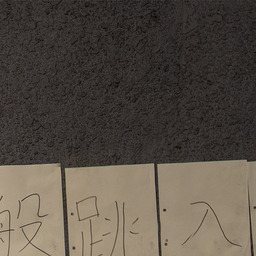 般跳入